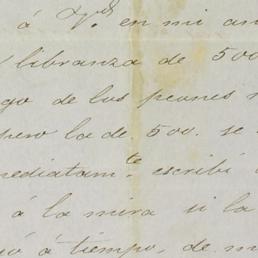 á Vds en mi an
libranza de 500
go de los peones
pero la de 500. se
mediatamte escribí
á la mira si la
á tiempo, de m